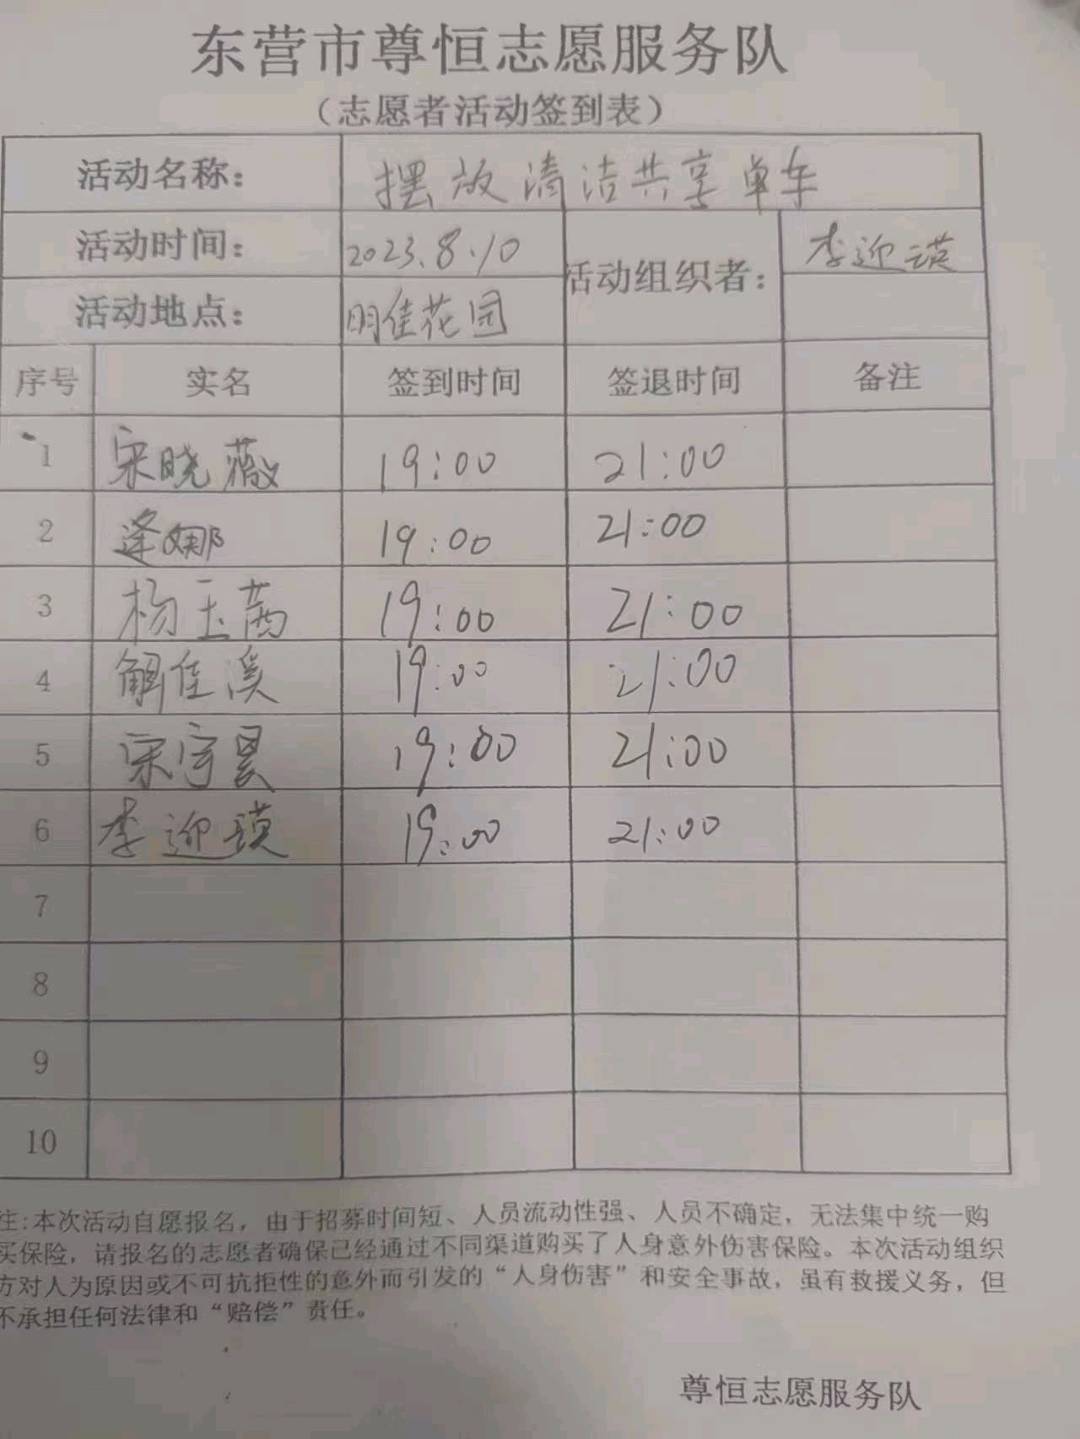 东营市尊恒志愿服务队
（志愿者活动签到表）
活动名称： 摆放清洁共享单车
活动时间： 2023.8.10 活动组织者： 李迎瑛
活动地点： 明佳花园
序号 实名 签到时间 签退时间 备注
1 宋晓薇 19:00 21:00
2 逄娜 19:00 21:00
3 杨玉茜 19:00 21:00
4 解佳溪 19:00 21:00
5 宋宇昊 19:00 21:00
6 李迎瑛 19:00 21:00
7
8
9
10
注:本次活动自愿报名，由于招募时间短、人员流动性强、人员不确定，无法集中统一购
买保险，请报名的志愿者确保已经通过不同渠道购买了人身意外伤害保险。本次活动组织
方对人为原因或不可抗拒性的意外而引发的“人身伤害”和安全事故，虽有救援义务，但
不承担任何法律和“赔偿”责任。
尊恒志愿服务队